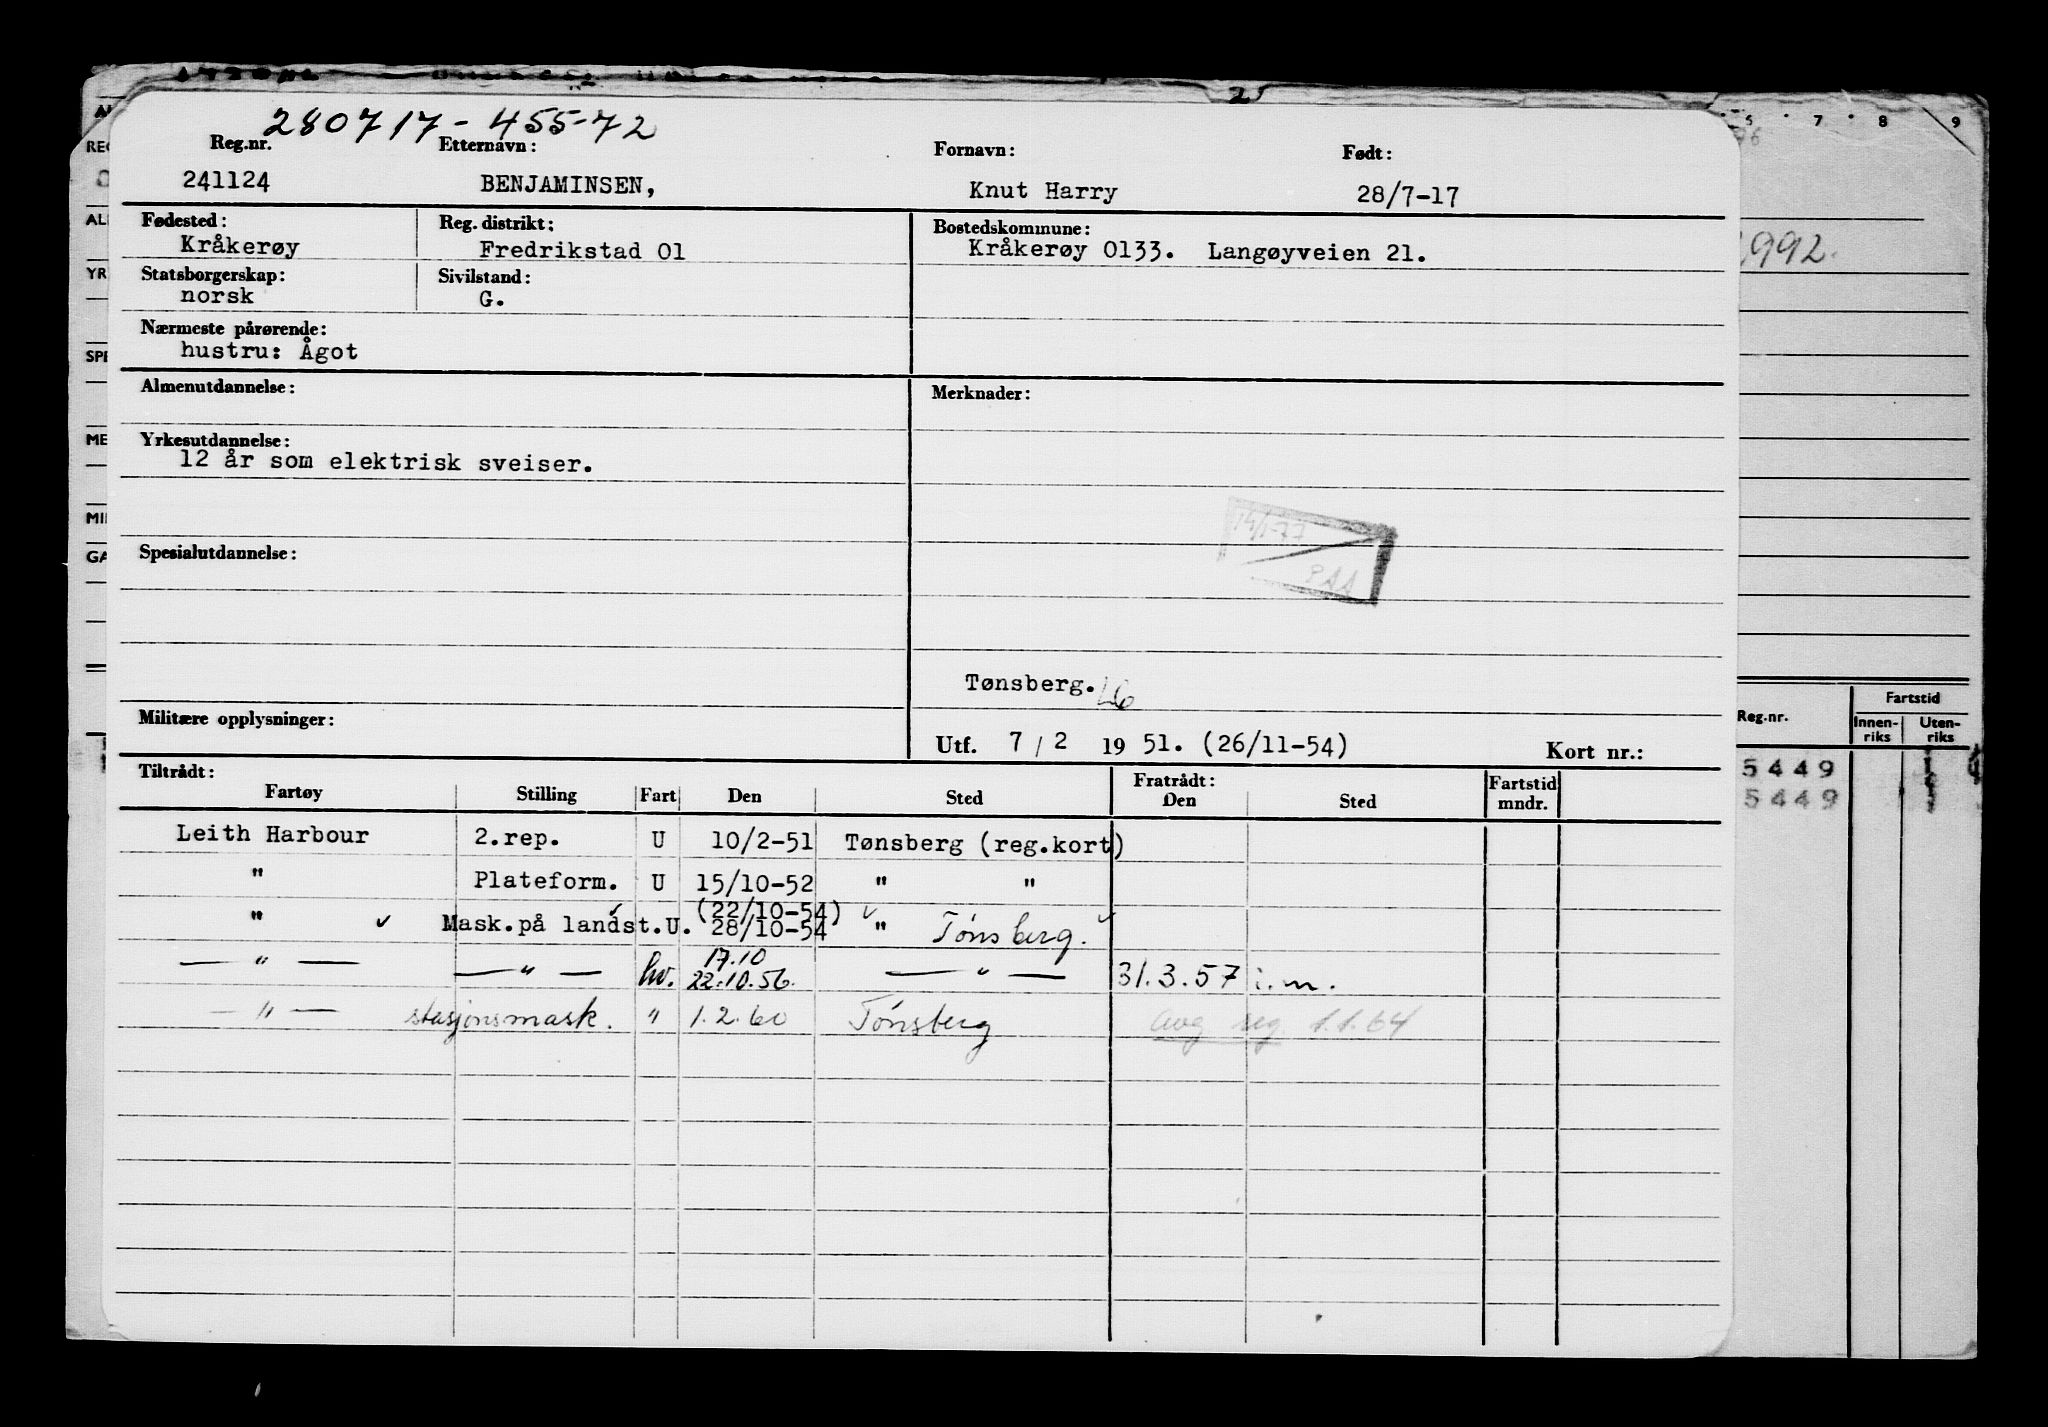 280717-455-72
Reg.nr. Etternavn: Fornavn: Født:
241124 BENJAMINSEN, Knut Harry 28/7-17
Fødested: Reg. distrikt: Bostedskommune:
Kråkerøy Fredrikstad 01 Kråkerøy 0133. Langøyveien 21.
Statsborgerskap: Sivilstand:
norsk G.
Nærmeste pårørende:
hustru: Ågot
Almenutdannelse: Merknader:
Yrkesutdannelse:
12 år som elektrisk sveiser.
14/1-77
PAA
Spesialutdannelse:
Tønsberg.
Militære opplysninger:
Utf. 7/2 1951. (26/11-54) Kort nr.:
Tiltrådt: Fratrådt:
Fartøy Stilling Fart Den Sted Den Sted Fartstid mndr.
Leith Harbour 2.rep. U 10/2-51 Tønsberg (reg.kort)
" Plateform. U 15/10-52 " "
(22/10-54)
" ✓ Mask.på landst.U. 28/10-54 " Tønsberg.
17.10
— " — — " — hv. 22.10.56. — " — 31.3.57 i.m.
— " — stasjonsmask. " 1.2.60 Tønsberg avg reg. 1.1.64
2
5 7 8 9
1992.
Reg.nr. Fartstid
Innen-riks Uten-riks
5449
5449